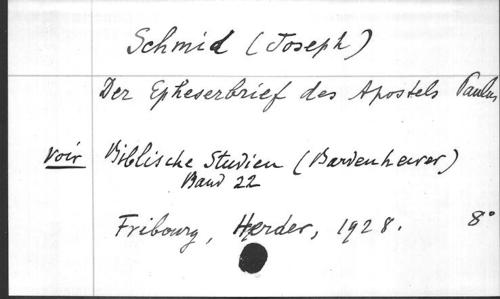 Schmid (Joseph)
Der Epheserbrief des Apostels Paulus
voir Biblische Studien (Bardenhewer)
Band 22
Fribourg, Herder, 1928. 8°